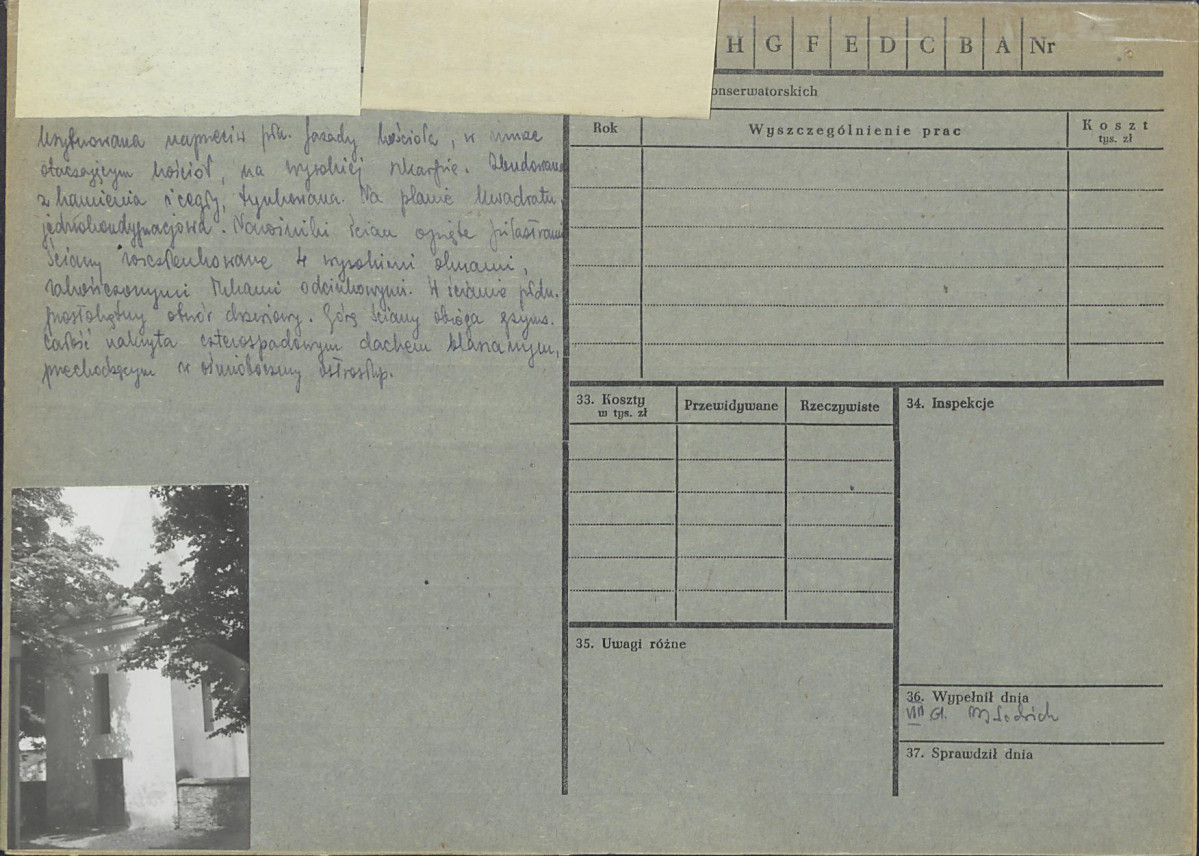 H G F E D C B A Nr
onserwatorskich
Rok Wyszczególnienie prac Koszt
tys. zł
Usytuowana naprzeciw płn. fasady kościoła, w murze
otaczającym kościół, na wysokiej skarpie. Zbudowana
z kamienia i cegły, tynkowana. Na planie kwadratu,
jednokondygnacjowa. Narożniki ścian opięte pilastrami
Ściany rozczłonkowane 4 wysokimi oknami,
zakończonymi łukami odcinkowymi. W ścianie płdn.
prostokątny otwór drzwiowy. Górę ściany obiega gzyms.
Całość nakryta czterospadowym dachem blaszanym,
przechodzącym w ośmioboczny ostrosłup.
33. Koszty
w tys. zł
Przewidywane
Rzeczywiste
34. Inspekcje
35. Uwagi różne
36. Wypełnił dnia
VIII
37. Sprawdził dnia